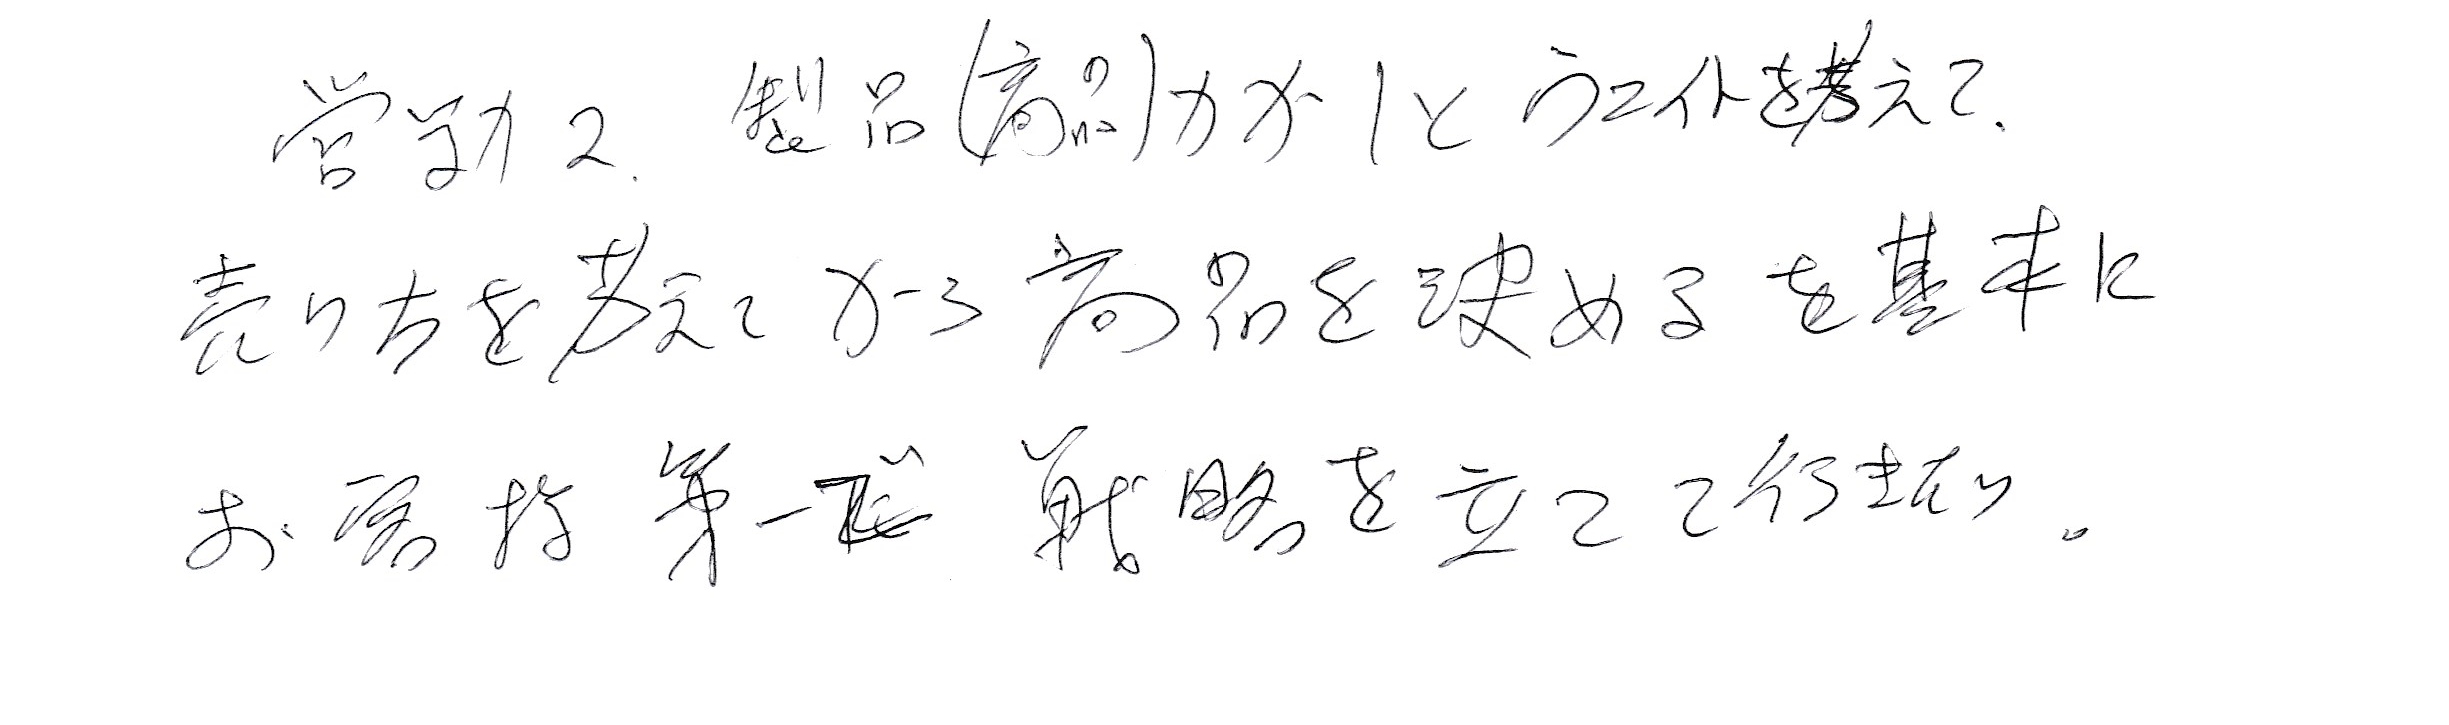 営業力2.製品(商品)力が1とウエイトを考えて、
売り方を考えてから商品を決めるを基本に
お客様第一 戦略を立てて行きたい。